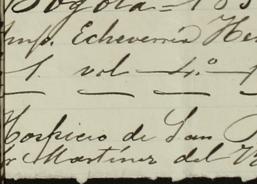 Bogotá = 185
Imp. Echeverría He
1. vol 4.º
Hospicio de San
Martínez del